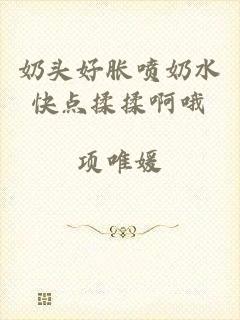 奶头好胀喷奶水
快点揉揉啊哦
项唯媛